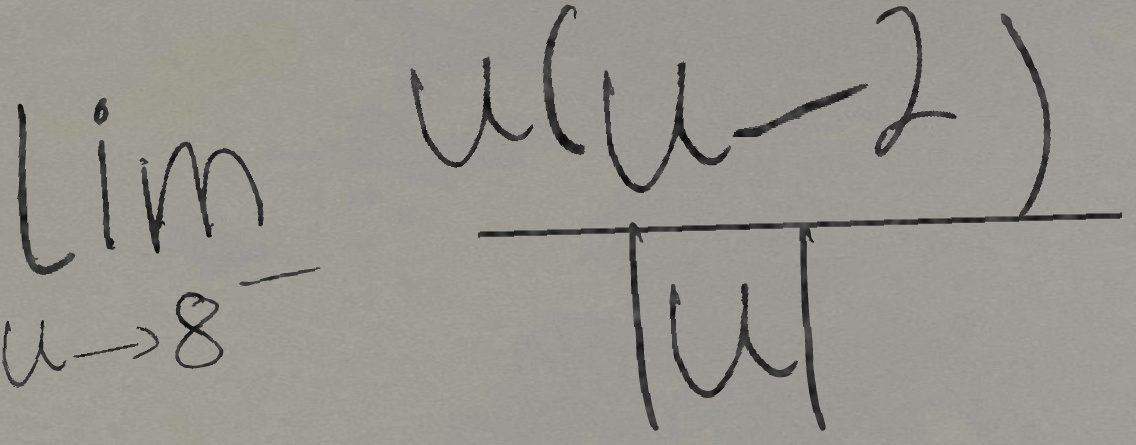 \lim_{u \to 8^-} \frac{u(u-2)}{|u|}